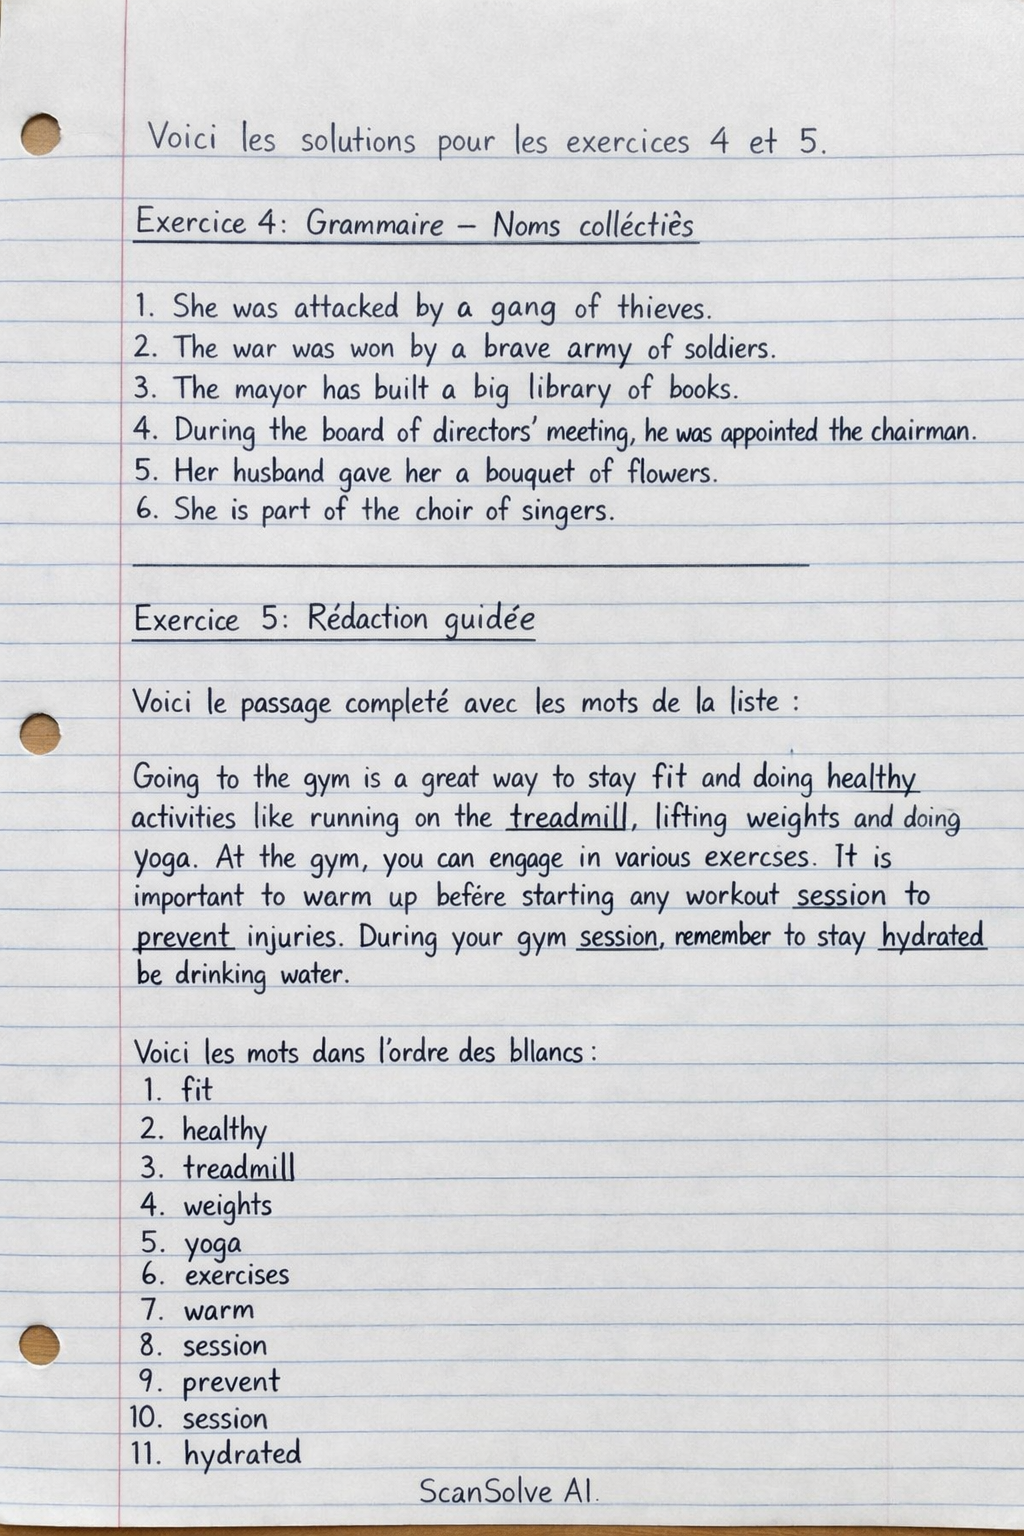 Voici les solutions pour les exercices 4 et 5.
Exercice 4: Grammaire – Noms colléctiês
1. She was attacked by a gang of thieves.
2. The war was won by a brave army of soldiers.
3. The mayor has built a big library of books.
4. During the board of directors' meeting, he was appointed the chairman.
5. Her husband gave her a bouquet of flowers.
6. She is part of the choir of singers.
Exercice 5: Rédaction guidée
Voici le passage completé avec les mots de la liste :
Going to the gym is a great way to stay fit and doing healthy
activities like running on the treadmill, lifting weights and doing
yoga. At the gym, you can engage in various exercses. It is
important to warm up befére starting any workout session to
prevent injuries. During your gym session, remember to stay hydrated
be drinking water.
Voici les mots dans l'ordre des bllancs :
1. fit
2. healthy
3. treadmill
4. weights
5. yoga
6. exercises
7. warm
8. session
9. prevent
10. session
11. hydrated
ScanSolve AI.